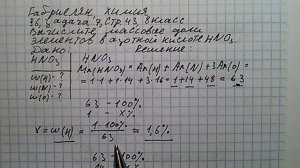 Габриелян, химия
§6, задача 7, стр. 43, 8 класс
Вычислите массовые доли
элементов в азотной кислоте HNO₃.
Дано: Решение:
HNO₃ HNO₃
w(H)-? Mr(HNO₃) = Ar(H) + Ar(N) + 3Ar(O) =
w(N)-? = 1·1 + 1·14 + 3·16 = 1+14+48 = 63
w(O)-?
63 – 100%
1 – x%
x = w(H) = 1·100% / 63 = 1,6%
63 – 100%